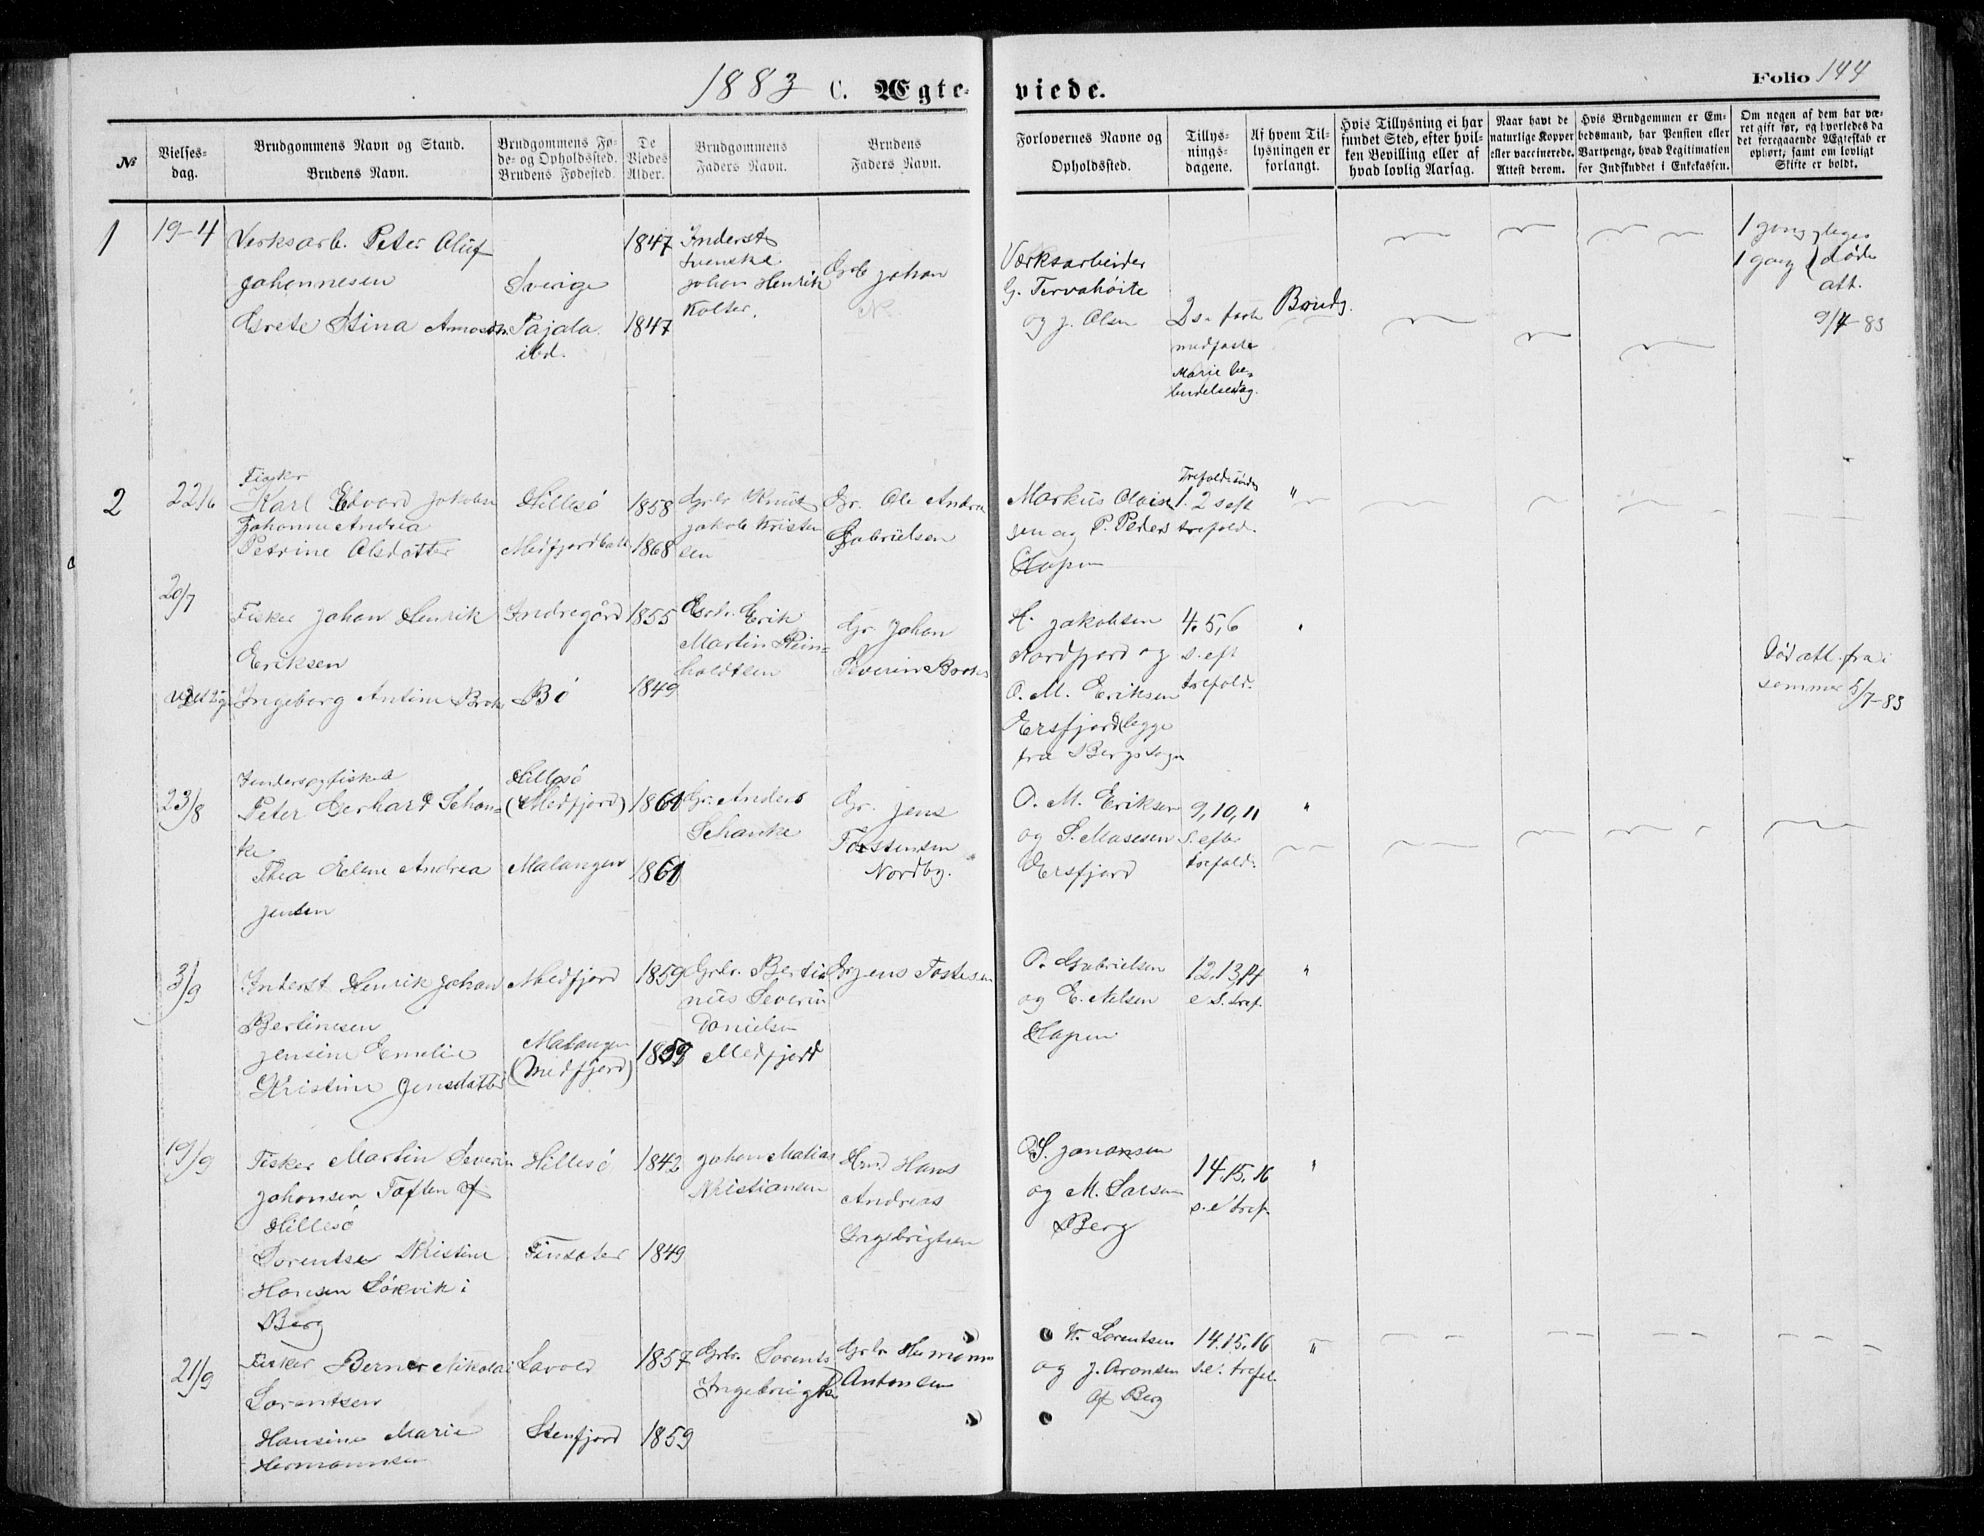 1883 C. Ægte-
viede.
Folio 144
№
Vielses-
dag.
Brudgommens Navn og Stand.
Brudens Navn.
Brudgommens Fø-
de- og Opholdssted.
Brudens Fødested.
De
Viedes
Alder.
Brudgommens
Faders Navn.
Brudens
Faders Navn.
Forlovernes Navne og
Opholdssted.
Tillys-
nings-
dagene.
Af hvem Til-
lysningen er
forlangt.
Hvis Tillysning ei har
fundet Sted, efter hvil-
ken Bevilling eller af
hvad lovlig Aarsag.
Naar havt de
naturlige Kopper
eller vaccinerede.
Attest derom.
Hvis Brudgommen er Em-
bedsmand, har Pension eller
Vartpenge, hvad Legitimation
for Indskuddet i Enkekassen.
Om nogen af dem har væ-
ret gift før, og hvorledes da
det foregaaende Ægteskab er
ophørt; samt om lovligt
Skifte er holdt.
1
19-4
Verksarb. Peter Oluf
Johannesen
Grete Stina
Sverige
Pajala
ibd.
1847
1847
Inderst
Svenske
Johan Henrik
Kolter.
Grb Johan
N.
Værksarbeider
G. Tervahöite
og J. Olsen
2 s. faste
midfaste
Marie be-
budelsesdag.
Brudg.
1 gang
1 gang døds
att.
9/4-83
2
22/6
Fisker
Karl Edvard Jakobsen
Johanne Andrea
Petrine Olsdatter
Hillesö
1858
1868
Grbr Knut
Jakob Kristen
sen
Gr. Ole Andrea
Gabrielsen
Markus Olai
sen og P. Peders
Trefoldi
1. 2 s eft
trefold.
20/7
Fisker Johan Henrik
Eriksen
Ingeborg Antine
Indregård
Bö
1855
1849
Gbr. Erik
Martin Rein-
holdtsen
Gr. Johan
Severin
H. Jakobsen
Nordfjord og
O. M. Eriksen
Ersfjord begge
fra Bergs sogn
4. 5, 6
s. eft
trefold.
Död att. fra
5/7-83
23/8
Peter Gerhard Schan-
ke
Thea Helene Andrea
Jensen
Hillesö
(Medfjord)
Malangen
1861
1861
Gr. Anders
Schanke
Gr. Jens
Tostensen
Nordby.
O. M. Eriksen
og S. Masesen
Ersfjord
9, 10, 11
s. efter
trefold.
3/9
Inderst Henrik Johan
Bertinesen
Jensine Emelie
Kristine Jensdatter
Medfjord
Malangen
(Medfjord)
1859
1859
Grbr. Bertin
nius Severin
Danielsen
Medfjord
Gr Jens Tostesen
O. Gabrielsen
og E. Nilsen
12. 13, 14
e s. tref.
19/9
Fisker Martin Severin
Johansen Toften af
Hillesö
Lorentse Kristine
Hansen Lökvik i
Berg
Hillesö
Finsæter
1842
1849
Johan Matias
Kristiansen
Hans
Andreas
Ingebrigtsen
S. Johansen
og M. Larsen
Berg
14. 15. 16
s. e' tref.
21/9
Fisker Berner Nikolai
Lorentsen
Hansine Marie
Hermannsen
Lavold
Stenfjord
1857
1859
Grbr. Lorents
Ingebrigts
Grbr Hermann
Antonsen
K. Lorentsen
og J. Aronsen
af Berg
14. 15. 16
s. e'. trefol.